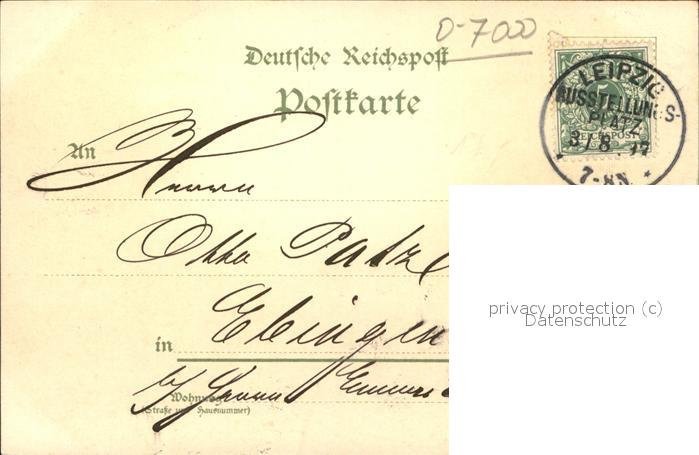 O-7000
Deutsche Reichspost
Postkarte
LEIPZIG
AUSSTELLUNGS-
PLATZ
REICHSPOST
3/8.97
7-8N.
An
Herrn
Otto Patz
privacy protection (c)
Datenschutz
Ebingen
in
Wohnung
(Straße und Hausnummer)